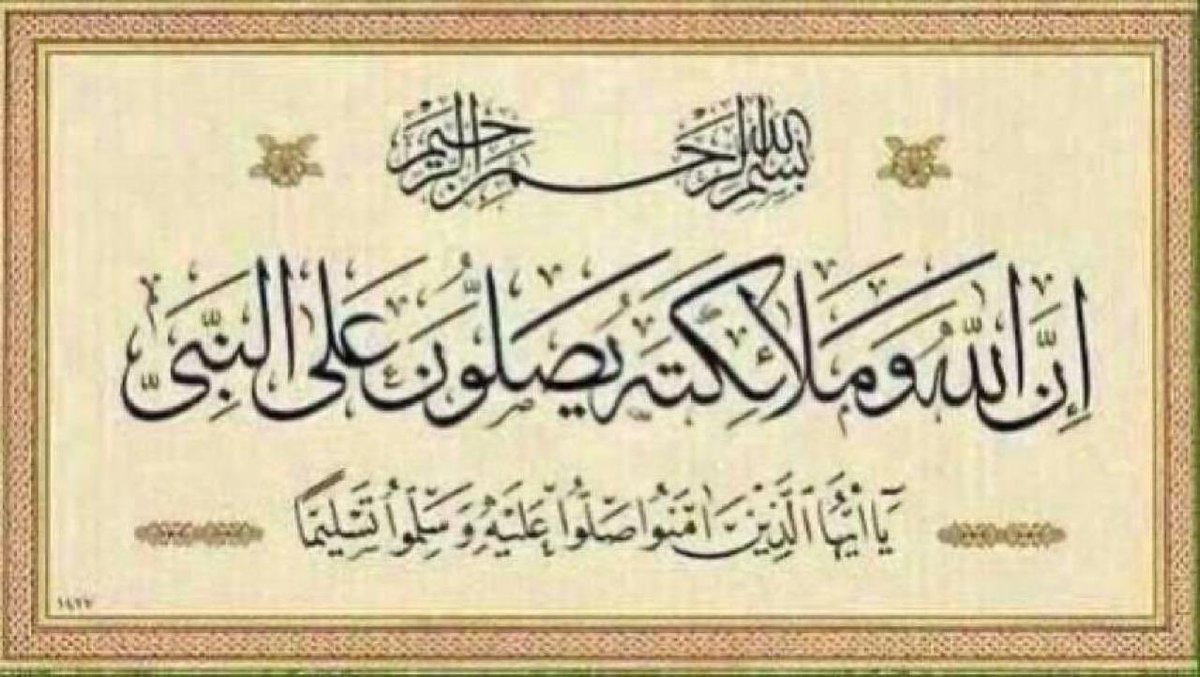 بسم الله الرحمن الرحيم
إِنَّ اللّٰهَ وَمَلَائِكَتَهُ يُصَلُّونَ عَلَى النَّبِيِّ
يَا أَيُّهَا الَّذِينَ آمَنُوا صَلُّوا عَلَيْهِ وَسَلِّمُوا تَسْلِيمًا